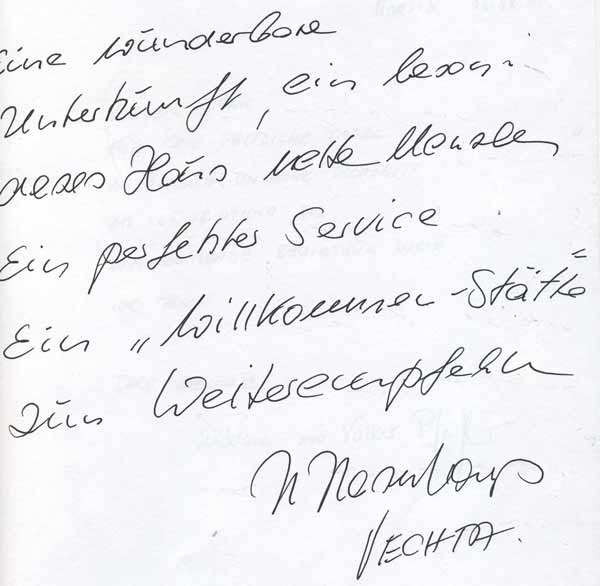 Eine wunderbare
Unterkunft, ein beson-
deres Haus nette Menschen
Ein perfekter Service
Ein „Willkommen-Stätte"
zum Weiterempfehlen
VECHTA.